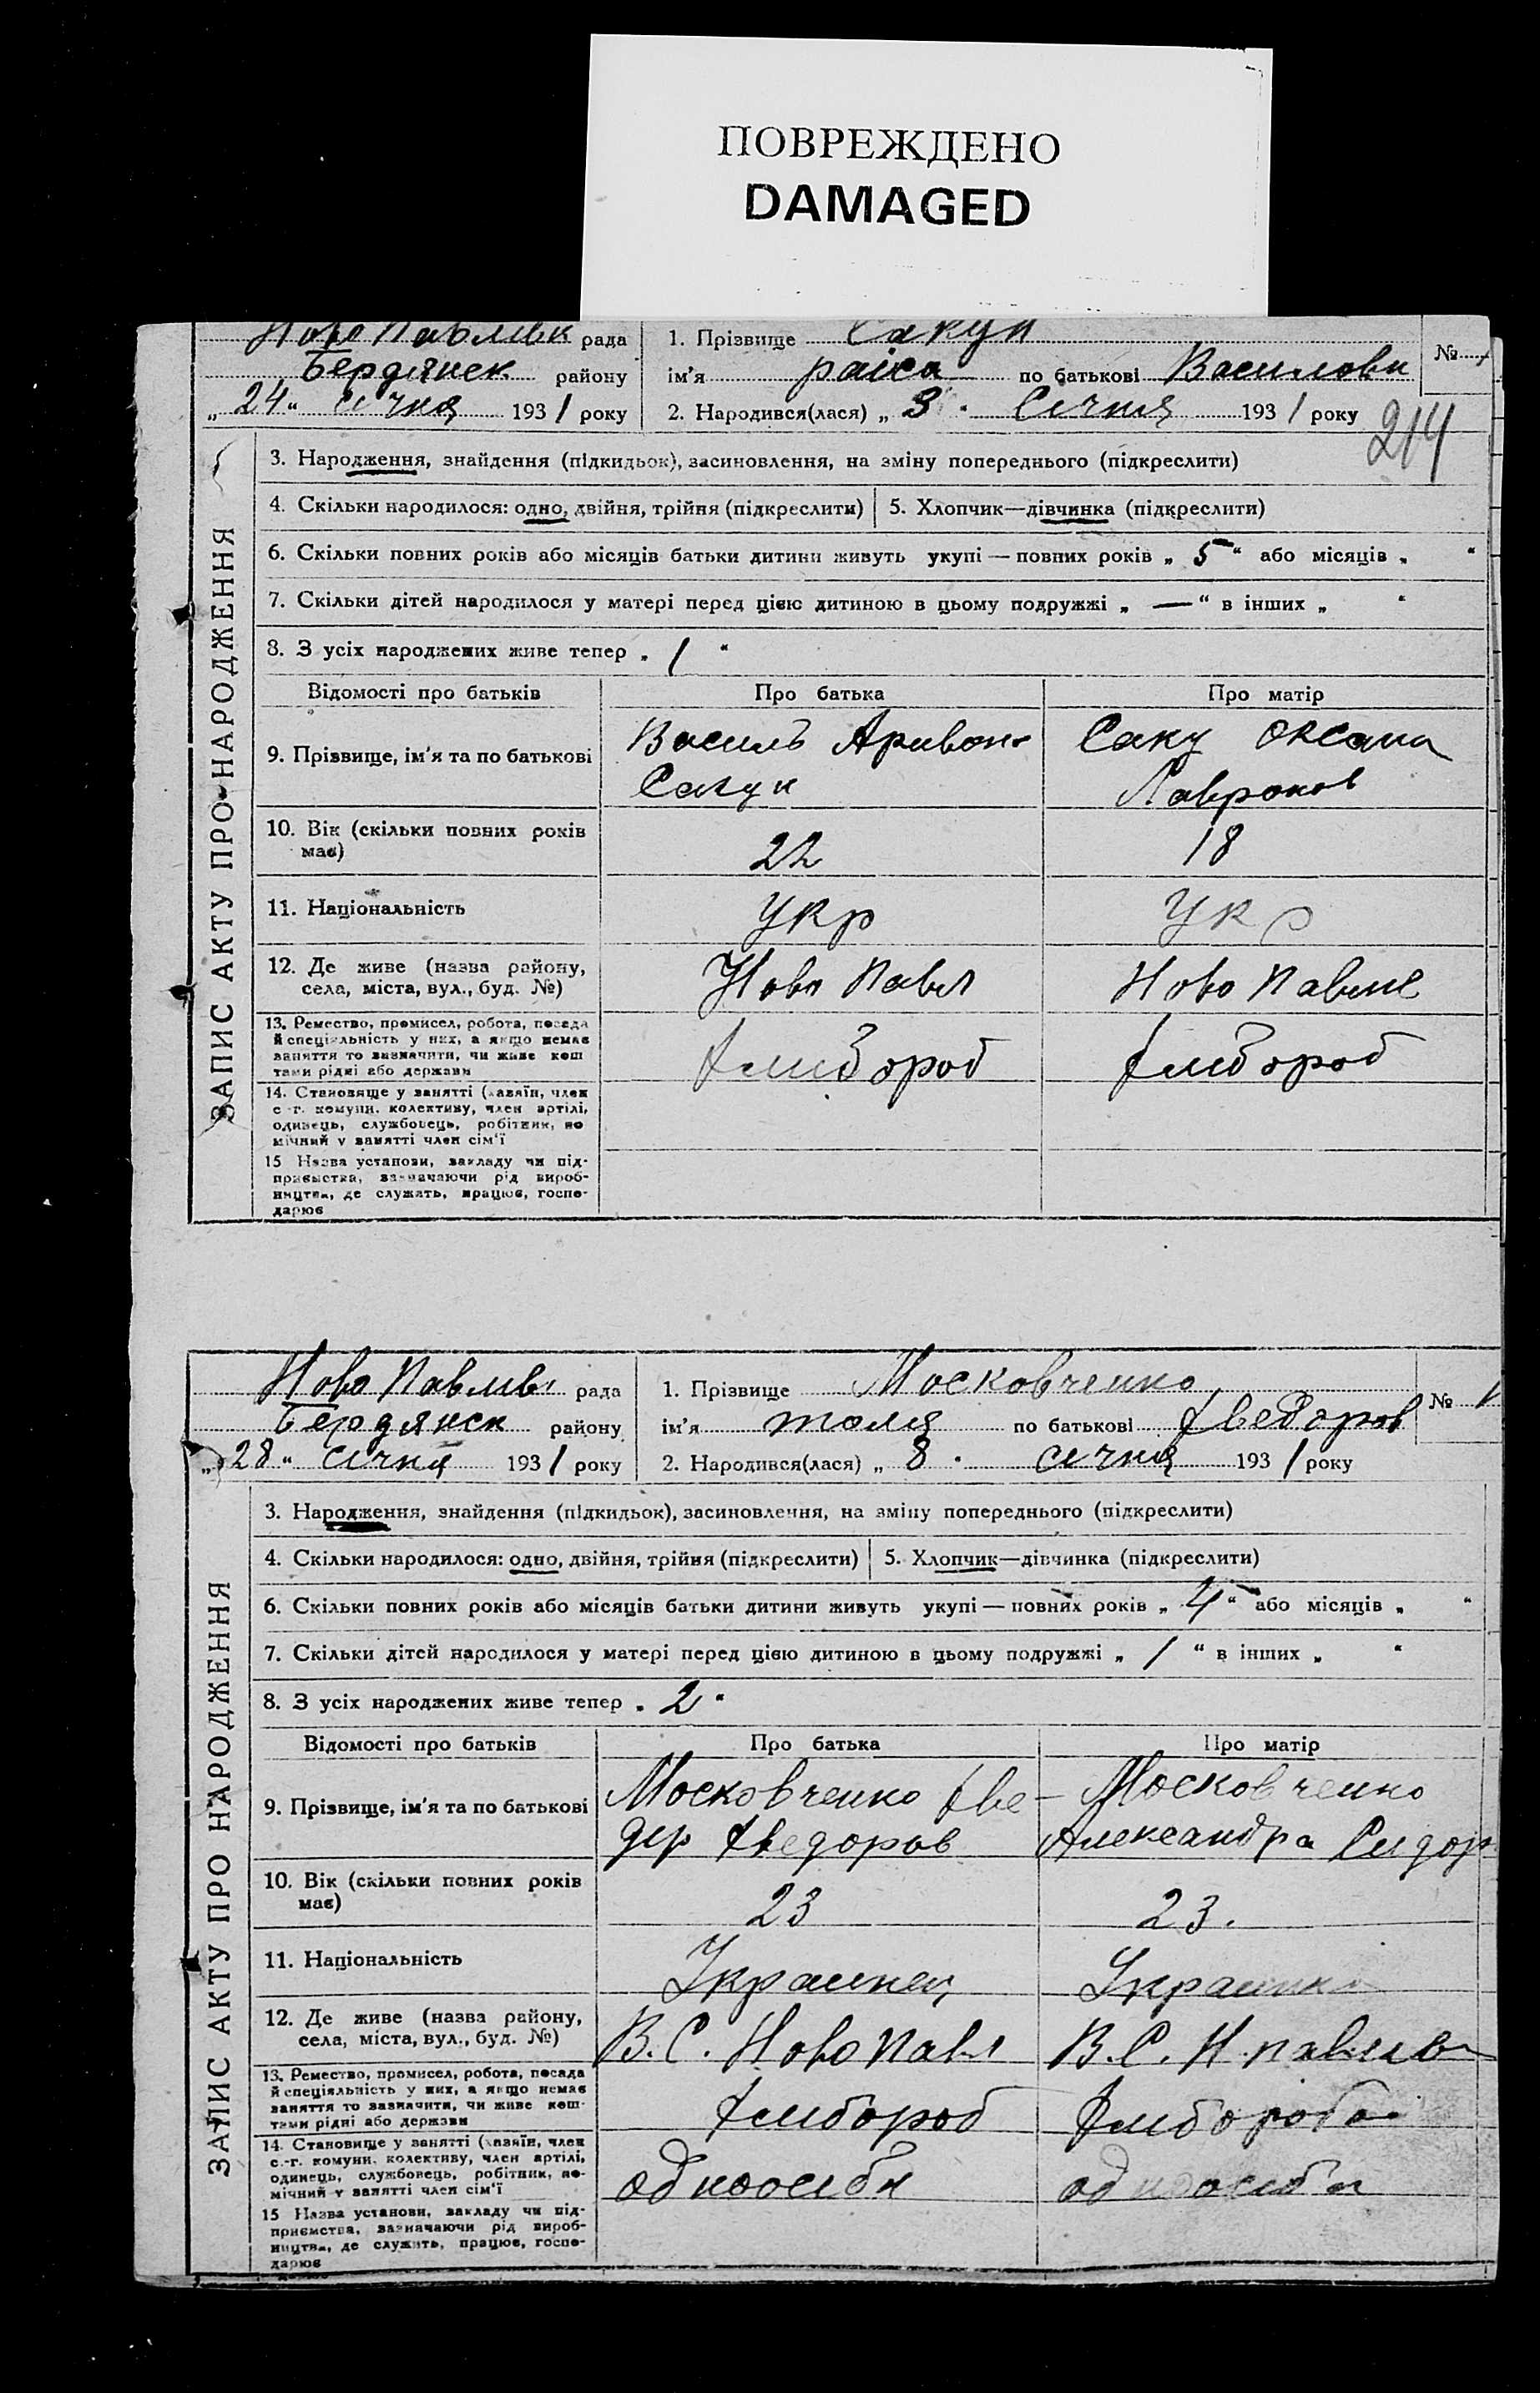 ПОВРЕЖДЕНО
DAMAGED
Ново Павлівк рада
Бердянск району
„ 24 “ січня 1931 року
1. Прізвище Сакун
ім'я раіса по батькові Василовн
2. Народився(лася) „ 3 “ Січня 1931 року
№
214
ЗАПИС АКТУ ПРО НАРОДЖЕННЯ
3. Народження, знайдення (підкидьок), засиновлення, на зміну попереднього (підкреслити)
4. Скільки народилося: одно, двійня, трійня (підкреслити) 5. Хлопчик—дівчинка (підкреслити)
6. Скільки повних років або місяців батьки дитини живуть укупі — повних років „ 5 “ або місяців „ “
7. Скільки дітей народилося у матері перед цією дитиною в цьому подружжі „ — “ в інших „ “
8. З усіх народжених живе тепер „ 1 “
Відомості про батьків Про батька Про матір
9. Прізвище, ім'я та по батькові
Василь
Сакун
Саку Оксана
10. Вік (скільки повних років
має)
22 18
11. Національність Укр Укр
12. Де живе (назва району,
села, міста, вул., буд. №)
Ново Павл Ново Павле
13. Ремество, промисел, робота, посада
й спеціяльність у них, а якщо немає
заняття то зазначити, чи живе кош
тами рідні або держави
хлибороб хлибороб
14. Становище у занятті (хазяїн, член
с.-г. комуни, колективу, член артілі,
одинець, службовець, робітник, по
мічний у занятті член сім'ї
15 Назва установи, закладу чи під-
приємства, зазначаючи рід вироб-
ництва, де служить, працює, госпо-
дарює
Ново Павлів рада
Бердянск району
„ 28 “ січня 1931 року
1. Прізвище Московченко
ім'я толя по батькові Хведоров
2. Народився(лася) „ 8 “ січня 1931 року
№
ЗАПИС АКТУ ПРО НАРОДЖЕННЯ
3. Народження, знайдення (підкидьок), засиновлення, на зміну попереднього (підкреслити)
4. Скільки народилося: одно, двійня, трійня (підкреслити) 5. Хлопчик—дівчинка (підкреслити)
6. Скільки повних років або місяців батьки дитини живуть укупі — повних років „ 4 “ або місяців „ “
7. Скільки дітей народилося у матері перед цією дитиною в цьому подружжі „ 1 “ в інших „ “
8. З усіх народжених живе тепер „ 2 “
Відомості про батьків Про батька Про матір
9. Прізвище, ім'я та по батькові
Московченко Хве-
дер Хведоров
Московченко
Александра Сидор
10. Вік (скільки повних років
має)
23 23.
11. Національність Украинец Украинка
12. Де живе (назва району,
села, міста, вул., буд. №)
В. С. Ново Павл В. С. Н. павлів
13. Ремество, промисел, робота, посада
й спеціяльність у них, а якщо немає
заняття то зазначити, чи живе кош-
тами рідні або держави
хлибороб хлибороб
14. Становище у занятті (хазяїн, член
с.-г. комуни, колективу, член артілі,
одинець, службовець, робітник, по-
мічний у занятті член сім'ї
одноосібн одноосібн
15 Назва установи, закладу чи під-
приємства, зазначаючи рід вироб-
ництва, де служить, працює, госпо-
дарює